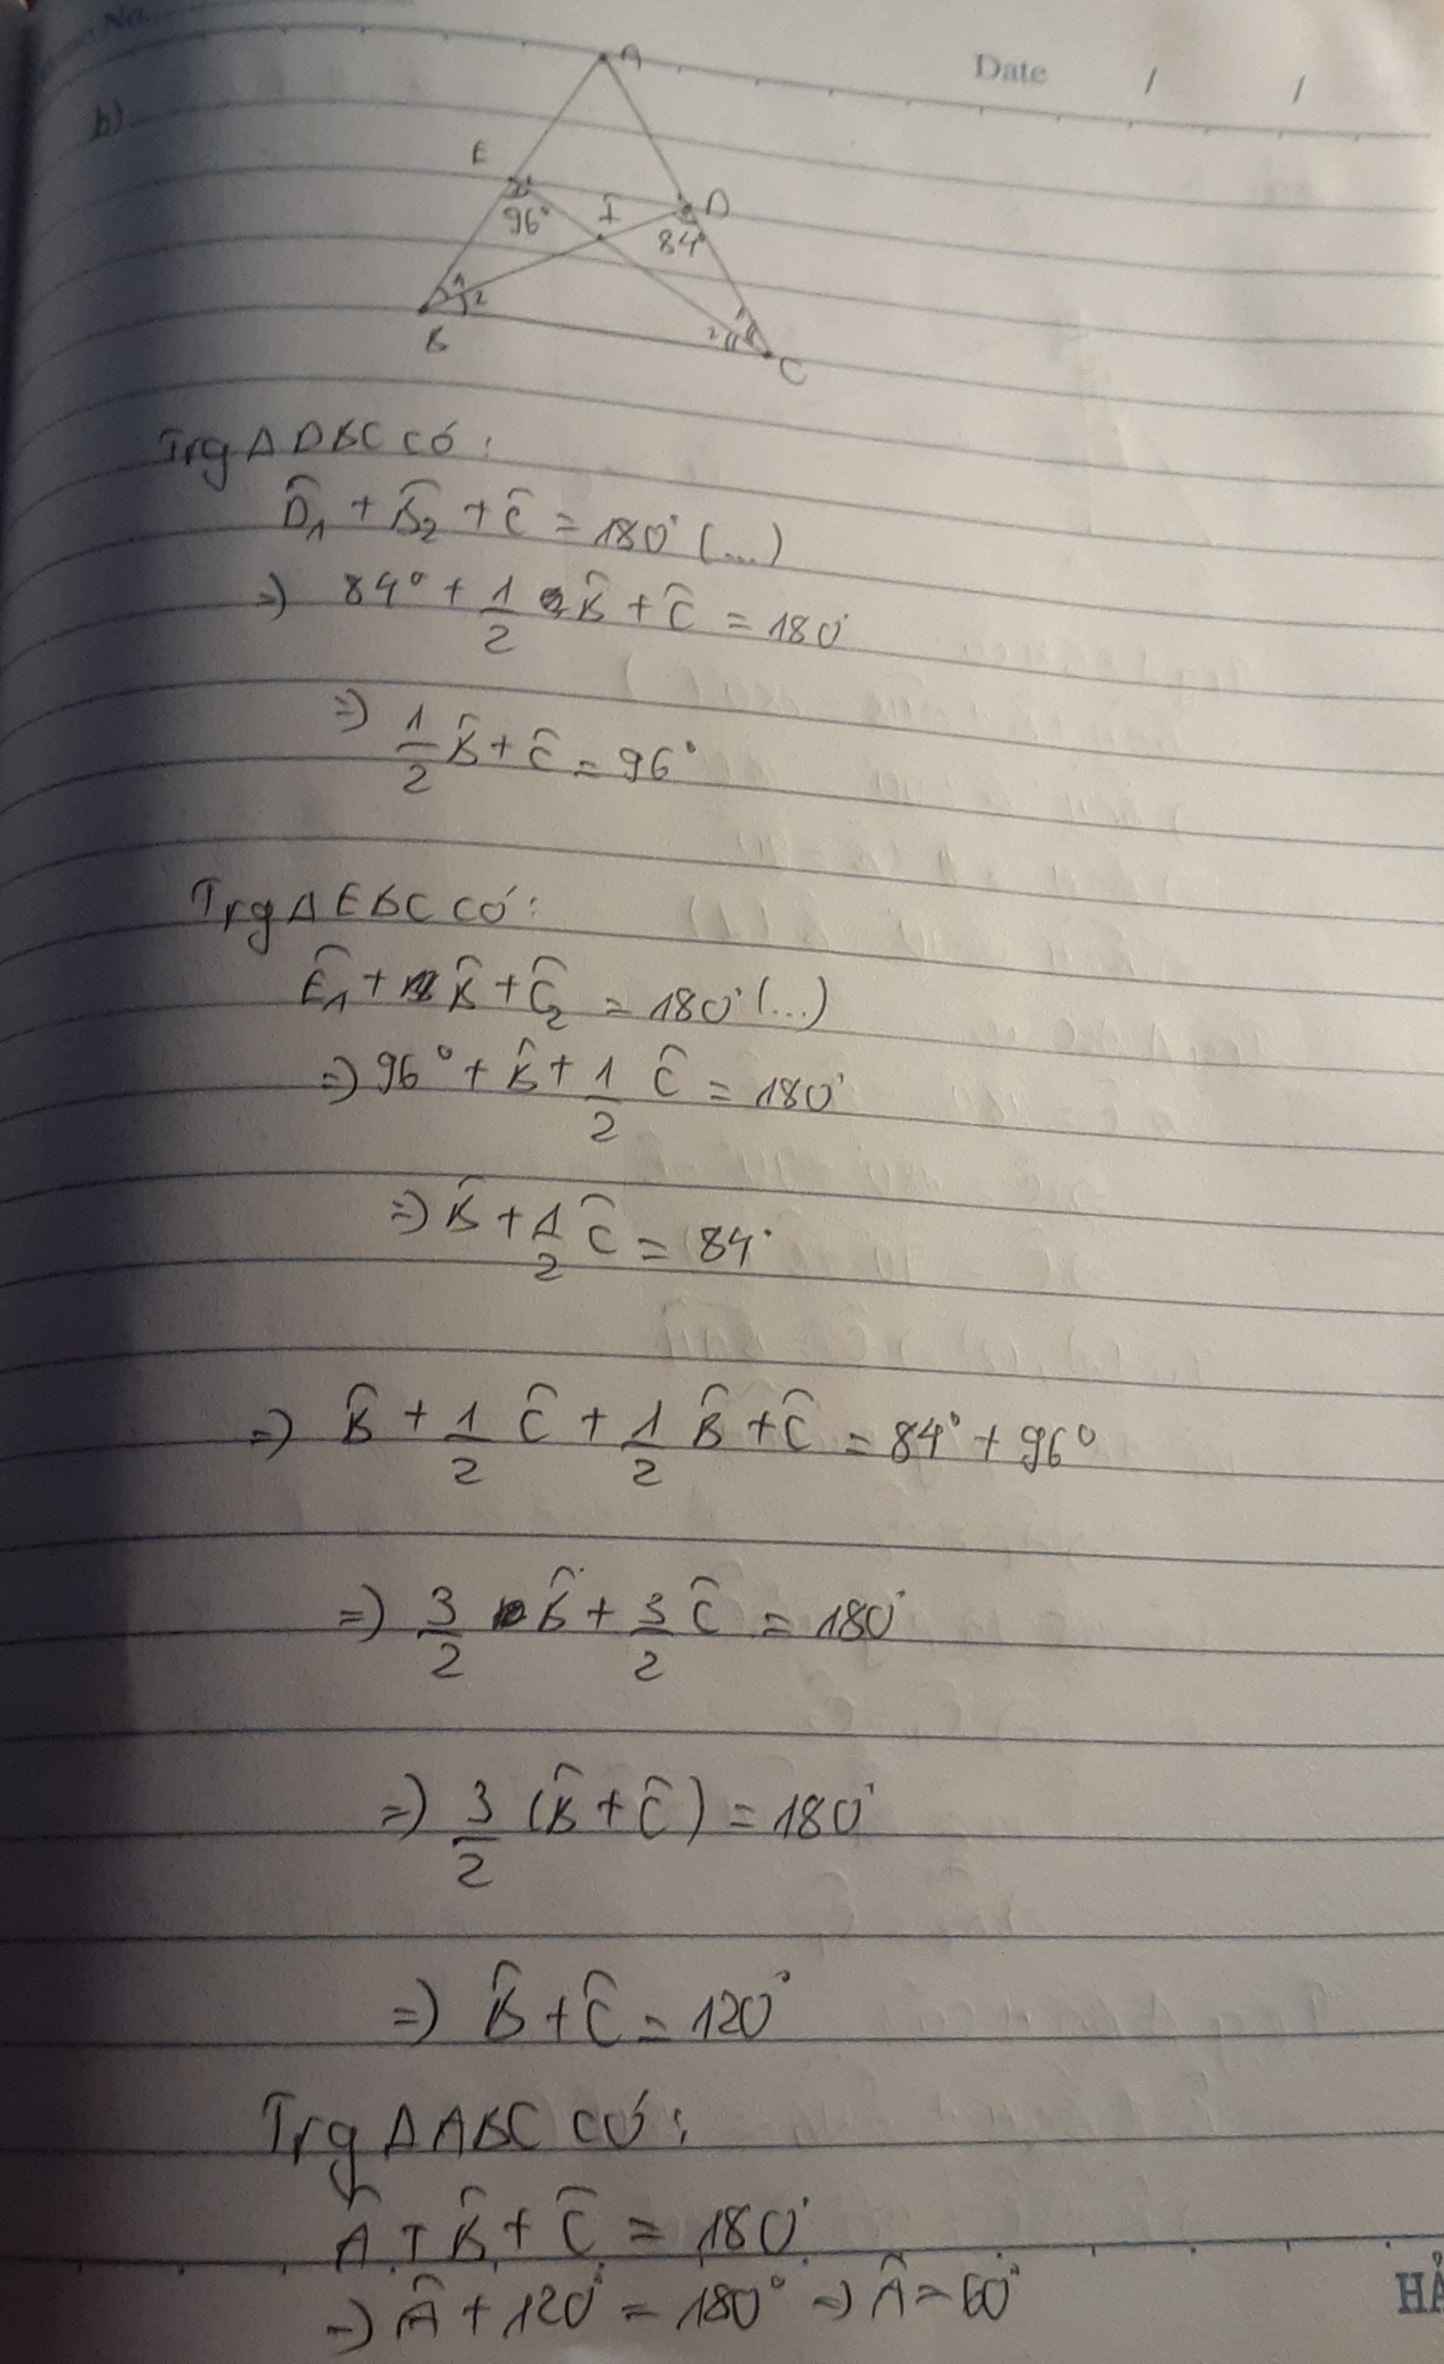 No.
Date / /
b)
A
E
D
96°
I
84°
1
2
1
2
B
C
Trg Δ DBC có:
D̂₁ + B̂₂ + Ĉ = 180° (...)
=) 84° + 1/2 B̂ + Ĉ = 180°
=) 1/2 B̂ + Ĉ = 96°
Trg Δ EBC có:
Ê₁ + B̂ + Ĉ₂ = 180° (...)
=) 96° + B̂ + 1/2 Ĉ = 180°
=) B̂ + 1/2 Ĉ = 84°
=) B̂ + 1/2 Ĉ + 1/2 B̂ + Ĉ = 84° + 96°
=) 3/2 B̂ + 3/2 Ĉ = 180°
=) 3/2 (B̂ + Ĉ) = 180°
=) B̂ + Ĉ = 120°
Trg Δ ABC có:
Â + B̂ + Ĉ = 180°
=) Â + 120° = 180° =) Â = 60°